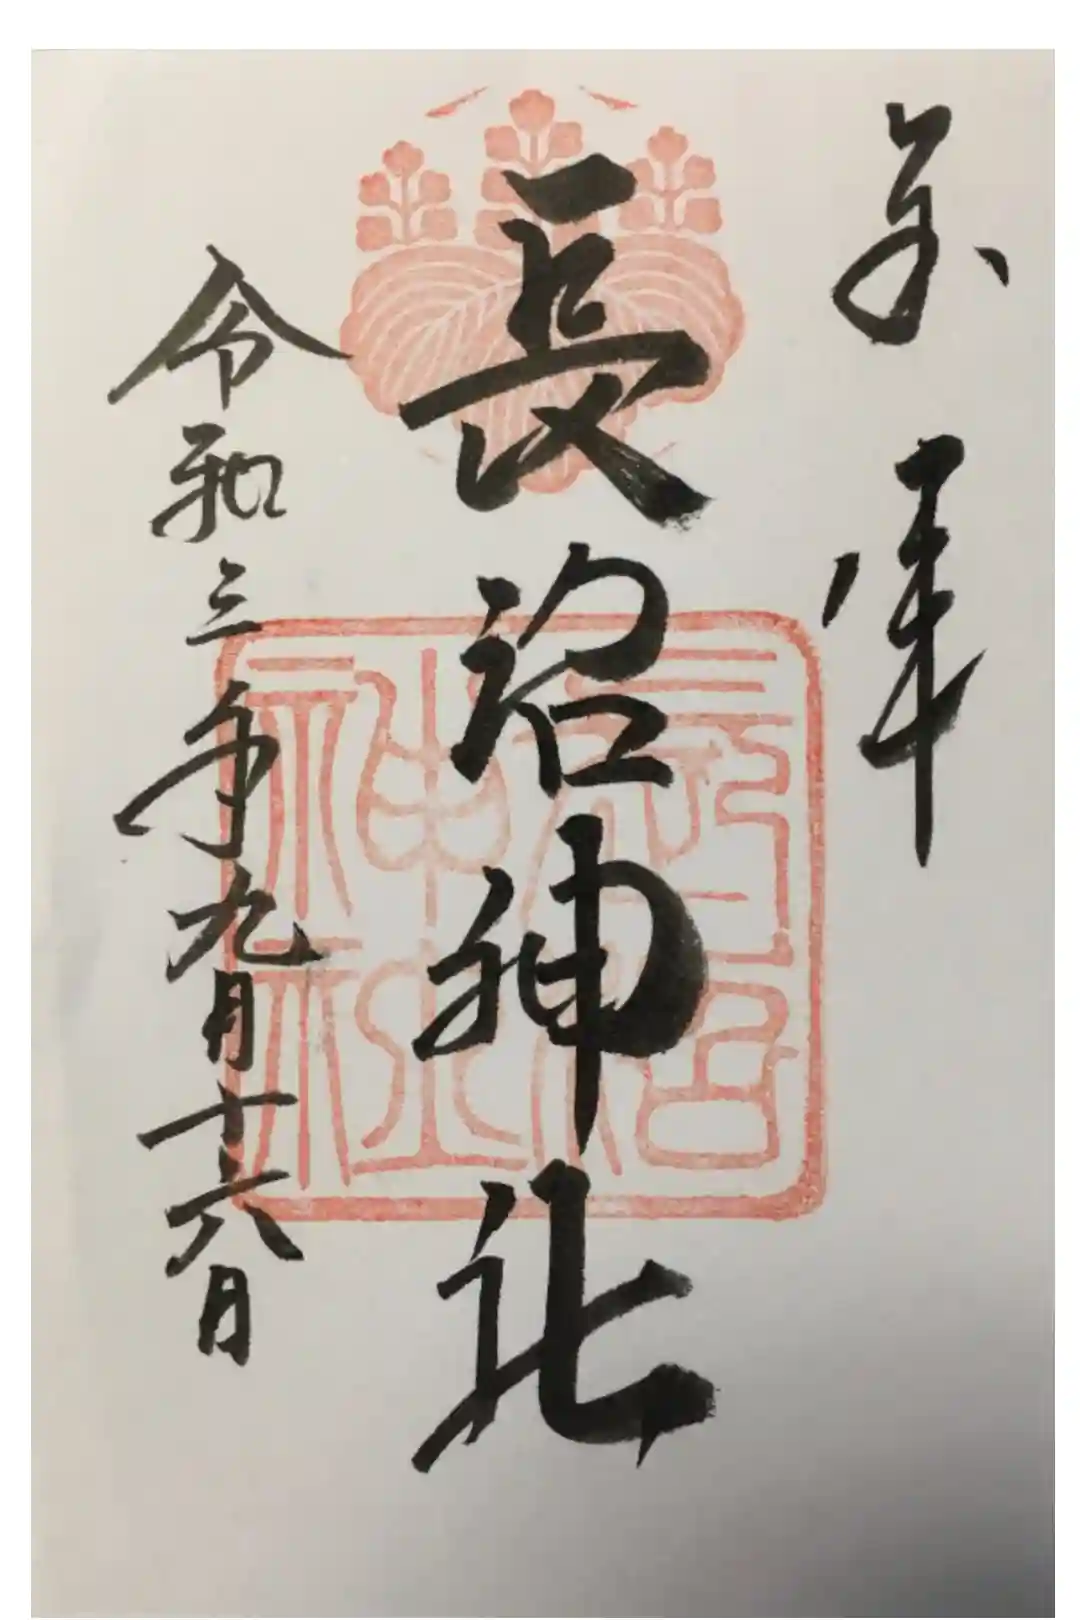 奉拝
長沼神社
令和三年九月十六日
長沼神社